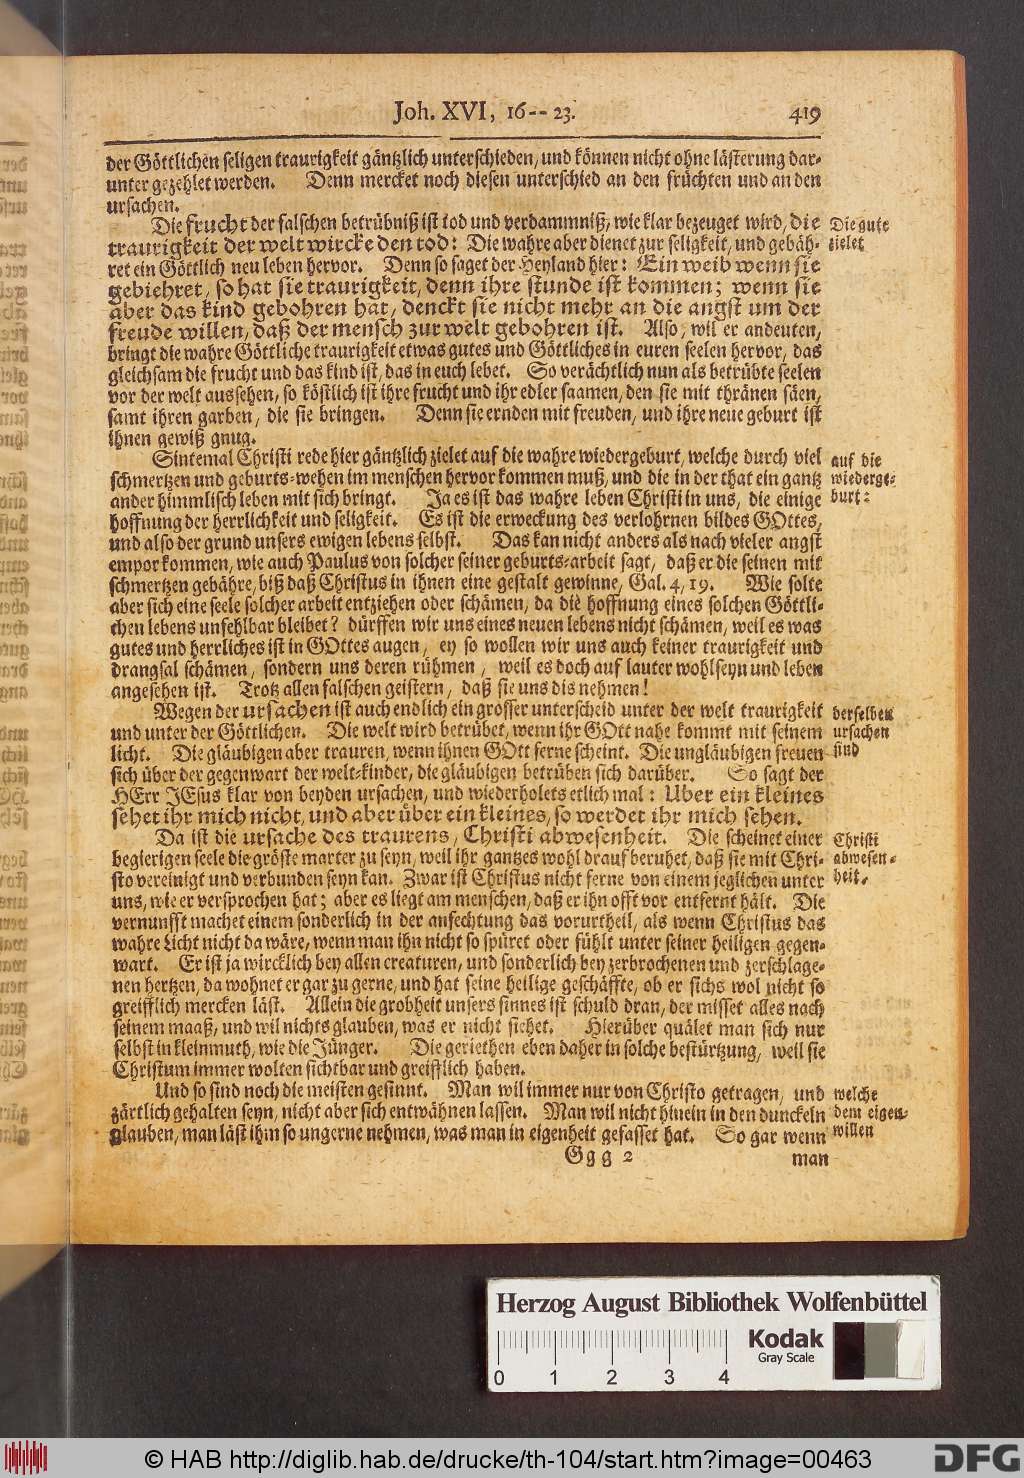 Joh. XVI, 16--23. 419
der Göttlichen seligen traurigkeit gäntzlich unterschieden, und können nicht ohne lästerung dar-
unter gezehlet werden. Denn mercket noch diesen unterschied an den früchten und an den
ursachen.
Die frucht der falschen betrübniß ist tod und verdammniß, wie klar bezeuget wird, die
traurigkeit der welt wircke den tod: Die wahre aber dienet zur seligkeit, und gebäh-
ret ein Göttlich neu leben hervor. Denn so saget der Heyland hier: Ein weib wenn sie
gebiehret, so hat sie traurigkeit, denn ihre stunde ist kommen; wenn sie
aber das kind gebohren hat, denckt sie nicht mehr an die angst um der
freude willen, daß der mensch zur welt gebohren ist. Also, wil er andeuten,
bringt die wahre Göttliche traurigkeit etwas gutes und Göttliches in euren seelen hervor, das
gleichsam die frucht und das kind ist, das in euch lebet. So verächtlich nun als betrübte seelen
vor der welt aussehen, so köstlich ist ihre frucht und ihr edler saamen, den sie mit thränen säen,
samt ihren garben, die sie bringen. Denn sie ernden mit freuden, und ihre neue geburt ist
ihnen gewiß gnug.
Die gute
zielet
Sintemal Christi rede hier gäntzlich zielet auf die wahre wiedergeburt, welche durch viel
schmertzen und geburts-wehen im menschen hervor kommen muß, und die in der that ein gantz
ander himmlisch leben mit sich bringt. Ja es ist das wahre leben Christi in uns, die einige
hoffnung der herrlichkeit und seligkeit. Es ist die erweckung des verlohrnen bildes GOttes,
und also der grund unsers ewigen lebens selbst. Das kan nicht anders als nach vieler angst
empor kommen, wie auch Paulus von solcher seiner geburts-arbeit sagt, daß er die seinen mit
schmertzen gebähre, biß daß Christus in ihnen eine gestalt gewinne, Gal. 4, 19. Wie solte
aber sich eine seele solcher arbeit entziehen oder schämen, da die hoffnung eines solchen Göttli-
chen lebens unfehlbar bleibet? dürffen wir uns eines neuen lebens nicht schämen, weil es was
gutes und herrliches ist in GOttes augen, ey so wollen wir uns auch keiner traurigkeit und
drangsal schämen, sondern uns deren rühmen, weil es doch auf lauter wohlseyn und leben
angesehen ist. Trotz allen falschen geistern, daß sie uns dis nehmen!
auf die
wiederge-
burt:
Wegen der ursachen ist auch endlich ein grosser unterscheid unter der welt traurigkeit
und unter der Göttlichen. Die welt wird betrübet, wenn ihr GOtt nahe kommt mit seinem
licht. Die gläubigen aber trauren, wenn ihnen GOtt ferne scheint. Die ungläubigen freuen
sich über der gegenwart der welt-kinder, die gläubigen betrüben sich darüber. So sagt der
HErr JEsus klar von beyden ursachen, und wiederholets etlich mal: Uber ein kleines
sehet ihr mich nicht, und aber über ein kleines, so werdet ihr mich sehen.
derselben
ursachen
sind
Da ist die ursache des traurens, Christi abwesenheit. Die scheinet einer
begierigen seele die gröste marter zu seyn, weil ihr gantzes wohl drauf beruhet, daß sie mit Chri-
sto vereinigt und verbunden seyn kan. Zwar ist Christus nicht ferne von einem jeglichen unter
uns, wie er versprochen hat; aber es liegt am menschen, daß er ihn offt vor entfernt hält. Die
vernunfft machet einem sonderlich in der anfechtung das vorurtheil, als wenn Christus das
wahre Licht nicht da wäre, wenn man ihn nicht so spüret oder fühlt unter seiner heiligen gegen-
wart. Er ist ja wircklich bey allen creaturen, und sonderlich bey zerbrochenen und zerschlage-
nen hertzen, da wohnet er gar zu gerne, und hat seine heilige geschäffte, ob er sichs wol nicht so
greifflich mercken läst. Allein die grobheit unsers sinnes ist schuld dran, der misset alles nach
seinem maaß, und wil nichts glauben, was er nicht siehet. Hierüber quälet man sich nur
selbst in kleinmuth, wie die Jünger. Die geriethen eben daher in solche bestürtzung, weil sie
Christum immer wolten sichtbar und greifflich haben.
Christi
abwesen-
heit,
Und so sind noch die meisten gesinnt. Man wil immer nur von Christo getragen, und
zärtlich gehalten seyn, nicht aber sich entwähnen lassen. Man wil nicht hinein in den dunckeln
glauben, man läst ihm so ungerne nehmen, was man in eigenheit gefasset hat. So gar wenn
welche
dem eigen-
willen
Ggg 2 man
Herzog August Bibliothek Wolfenbüttel
Kodak
Gray Scale
0 1 2 3 4
© HAB http://diglib.hab.de/drucke/th-104/start.htm?image=00463
DFG